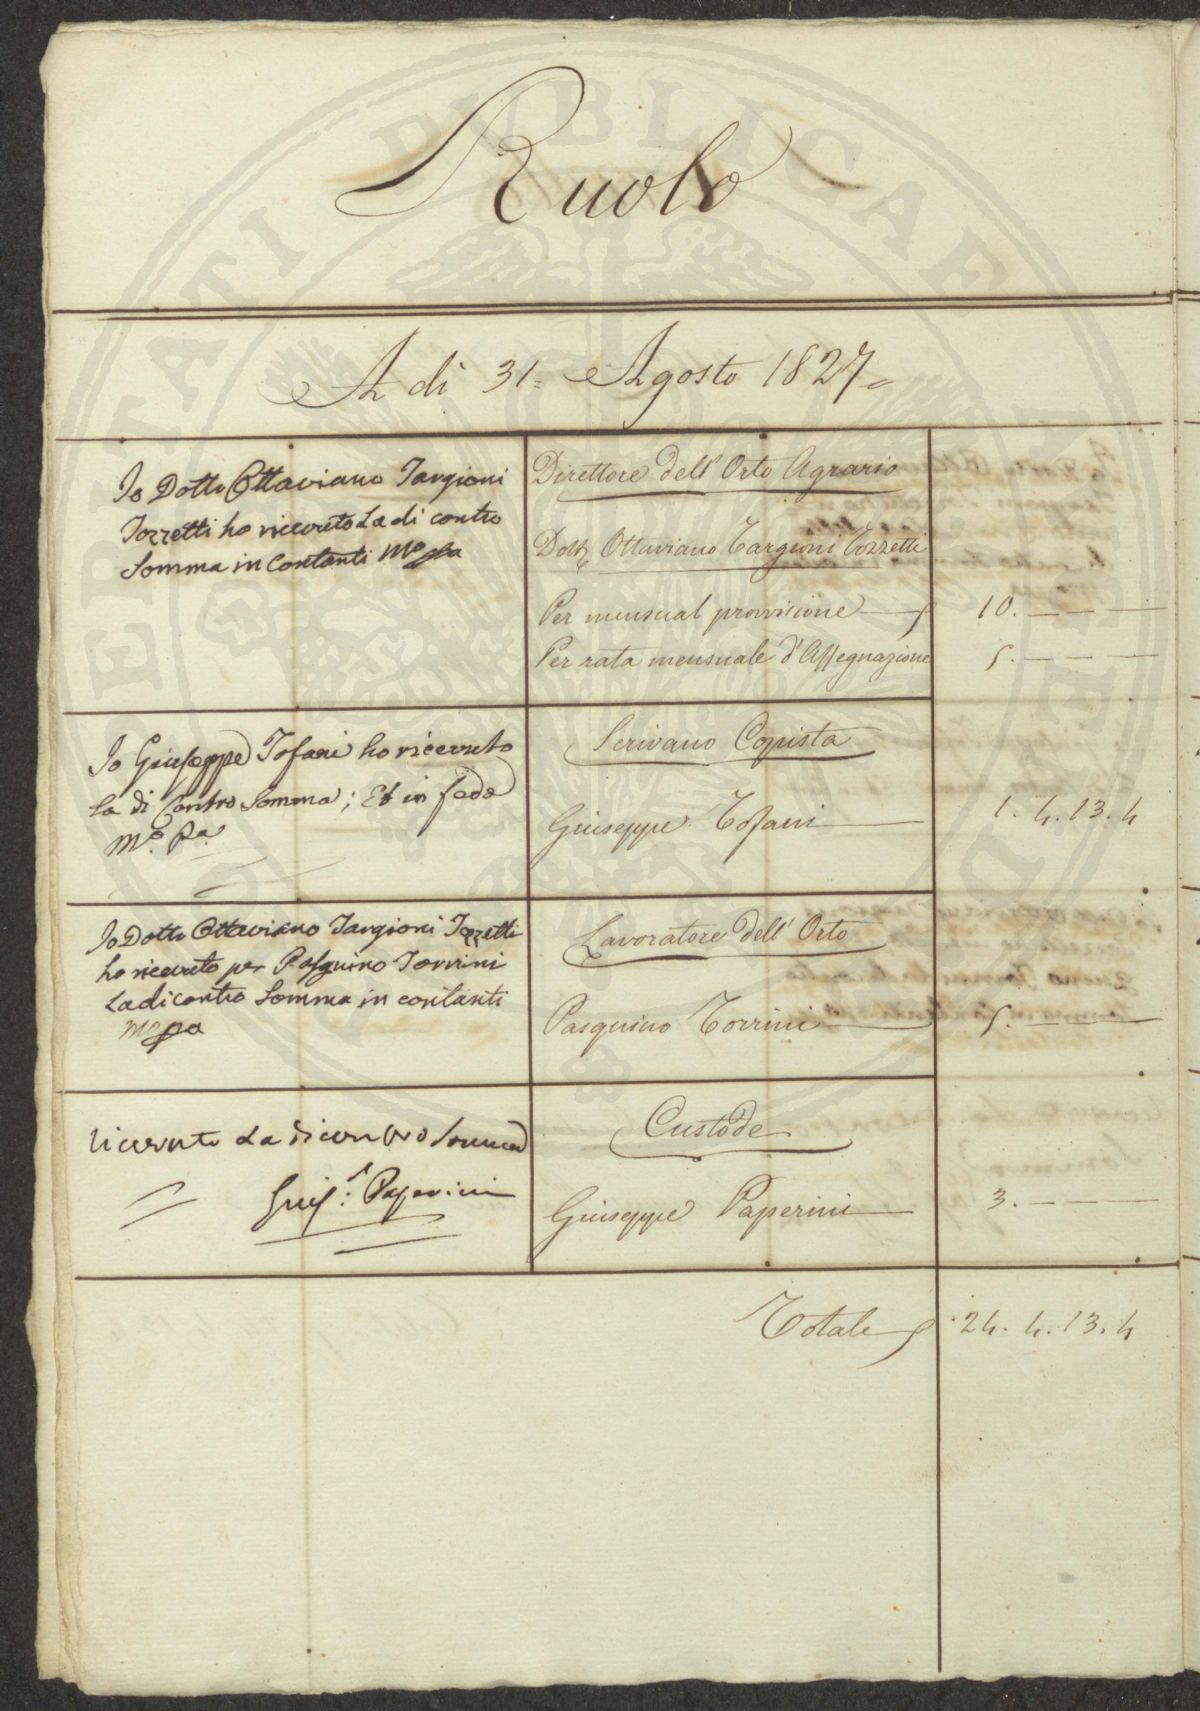 Ruolo
A di 31= Agosto 1827=
Io Dotto Ottaviano Targioni
Tozzetti ho ricevuto La di contro
Somma in Contanti Mo pa
Direttore dell' Orto Agrario
Dott Ottaviano Targioni Tozzetti
Per mensual provvisione 10. — — —
Per rata mensuale d'Assegnazione 5. — — —
Io Giuseppe Tofani ho ricevuto
la di Contro Somma; Et in fede
Mo. Pa.
Scrivano Copista
Giuseppe Tofani 1. 4. 13. 4
Io Dotto Ottaviano Targioni Tozzetti
ho ricevuto per Pasquino Torrini
La di contro Somma in contanti
Mo pa
Lavoratore dell' Orto
Pasquino Torrini 5. — — —
ricevuto La di contro Somma
Giuse: Paperini
Custode
Giuseppe Paperini 3. — — —
Totale 24. 4. 13. 4